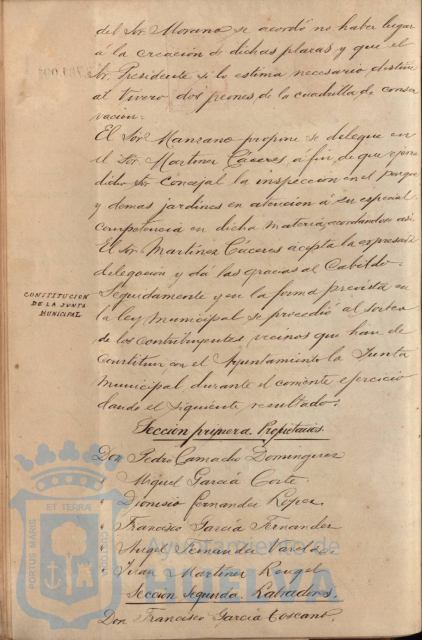 del Sor. Morano se acordó no haber lugar
á la creacion de dichas plazas y que el
Sr. Presidente si lo estima necesario, destine
al Vivero dos peones de la cuadrilla de conser
vacion.
El Sor. Manzano propone se delegue en
el Sor. Martinez Cáceres, á fin de que ejerza
dicho Sr. Concejal la inspeccion en el parque
y demas jardines en atencion á su especial
competencia en dicha materia, acordándose asi.
El Sr. Martinez Cáceres acepta la expresada
delegacion y dá las gracias al Cabildo.
CONSTITUCION
DE LA JUNTA
MUNICIPAL
Seguidamente y en la forma prevista en
la ley Municipal se procedió al sorteo
de los contribuyentes vecinos que han de
Constituir con el Ayuntamiento la Junta
Municipal durante el corriente ejercicio
dando el siguiente resultado.
Seccion primera. Propietarios.
Don Pedro Camacho Dominguez
" Miguel Garcia Corte
" Dionisio Fernandez Lopez
" Francisco Garcia Fernandez
" Angel Fernandez Varela
" Juan Martinez Rengel
Seccion Segunda. Labradores.
Don Francisco Garcia Toscano.
ET TERRÆ
PORTUS MARIS
CUSTODIA
Ayuntamiento de
HUELVA